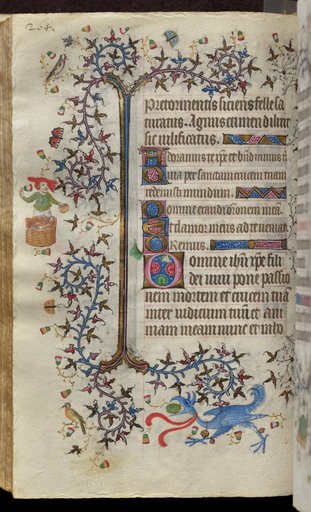 264.
pretormentis siciens felle sa
turatus. Agnus crimen diluit
sic uilificatus.
Adoramus te xpe et bndicimus ti
Quia per sanctam crucem tuam
redemisti mundum.
Domine exaudi oronem mea.
Et clamor meus ad te ueniat.
Oremus.
Domine ihu xpe fili
dei uiui pone passio
nem mortem et crucem tua
inter iudicium tuu et ani
mam meam nunc et in ho